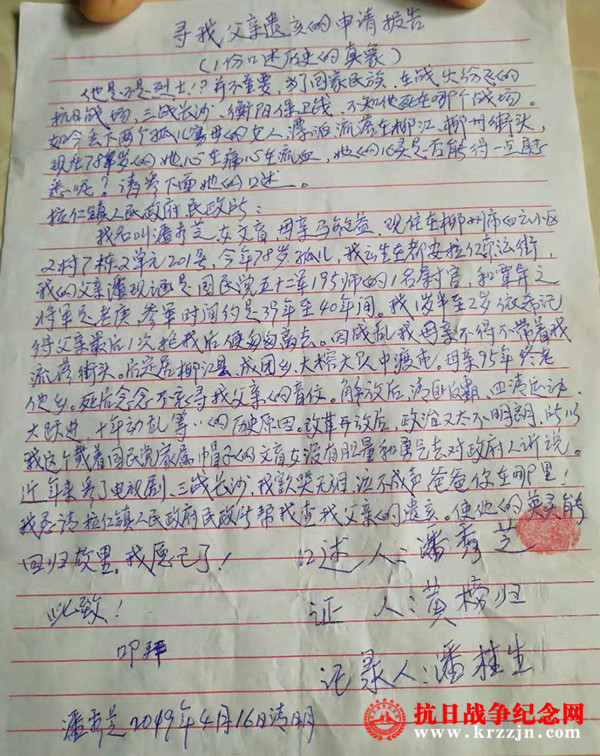 寻找父亲遗亥的申请报告
(1份口述历史的真象)
他是不是烈士!?并不重要,为了国家民族,在战火纷飞的
抗日战场,三战长沙,衡阳保卫战,不知他死在哪个战场。
如今丢下两个孤儿寡母的女人漂泊流落在柳江、柳州街头,
现在78岁的她心在痛心在流血,她的心灵是否能得一点慰
悉呢?请参下面她的口述。
拉仁镇人民政府民政所:
我名叫潘秀芝,女文盲,母亲,现住在柳州市白云小区
2村7栋2单元201号,今年78岁孤儿,我出生在都安拉仁街,
我的父亲潘现涵是国民党五十二军195师的1名尉官,和覃异之
将军是老庚,参军时间约是39年至40年间。我1岁半至2岁依希记
得父亲最后1次抱我后便匆匆离去。因战乱我母亲不得不带着我
流落街头。后定居柳江县成团乡大榕大队中渡屯。母亲95年终老
他乡。死后念念不忘寻找父亲的音信。解放后,清匪反霸、四清运动、
大跃进、十年动乱等··的历史原因。改革开放后,政治又太不明朗,所以
我这个戴着国民党家属帽子的文盲女没有胆量和勇气去对政府人诉说。
近年来看了电视剧,三战长沙,我欲哭无泪,泣不成声爸爸你在哪里!
我恳请拉仁镇人民政府民政所帮我查找父亲的遗亥。使他的英灵能
回归故里,我愿已了!
口述人:潘秀芝
此致!
证 人:黄榜归
叩拜
记录人:潘桂生
潘秀芝2019年4月16日清明
抗日战争纪念网
www.krzzjn.com